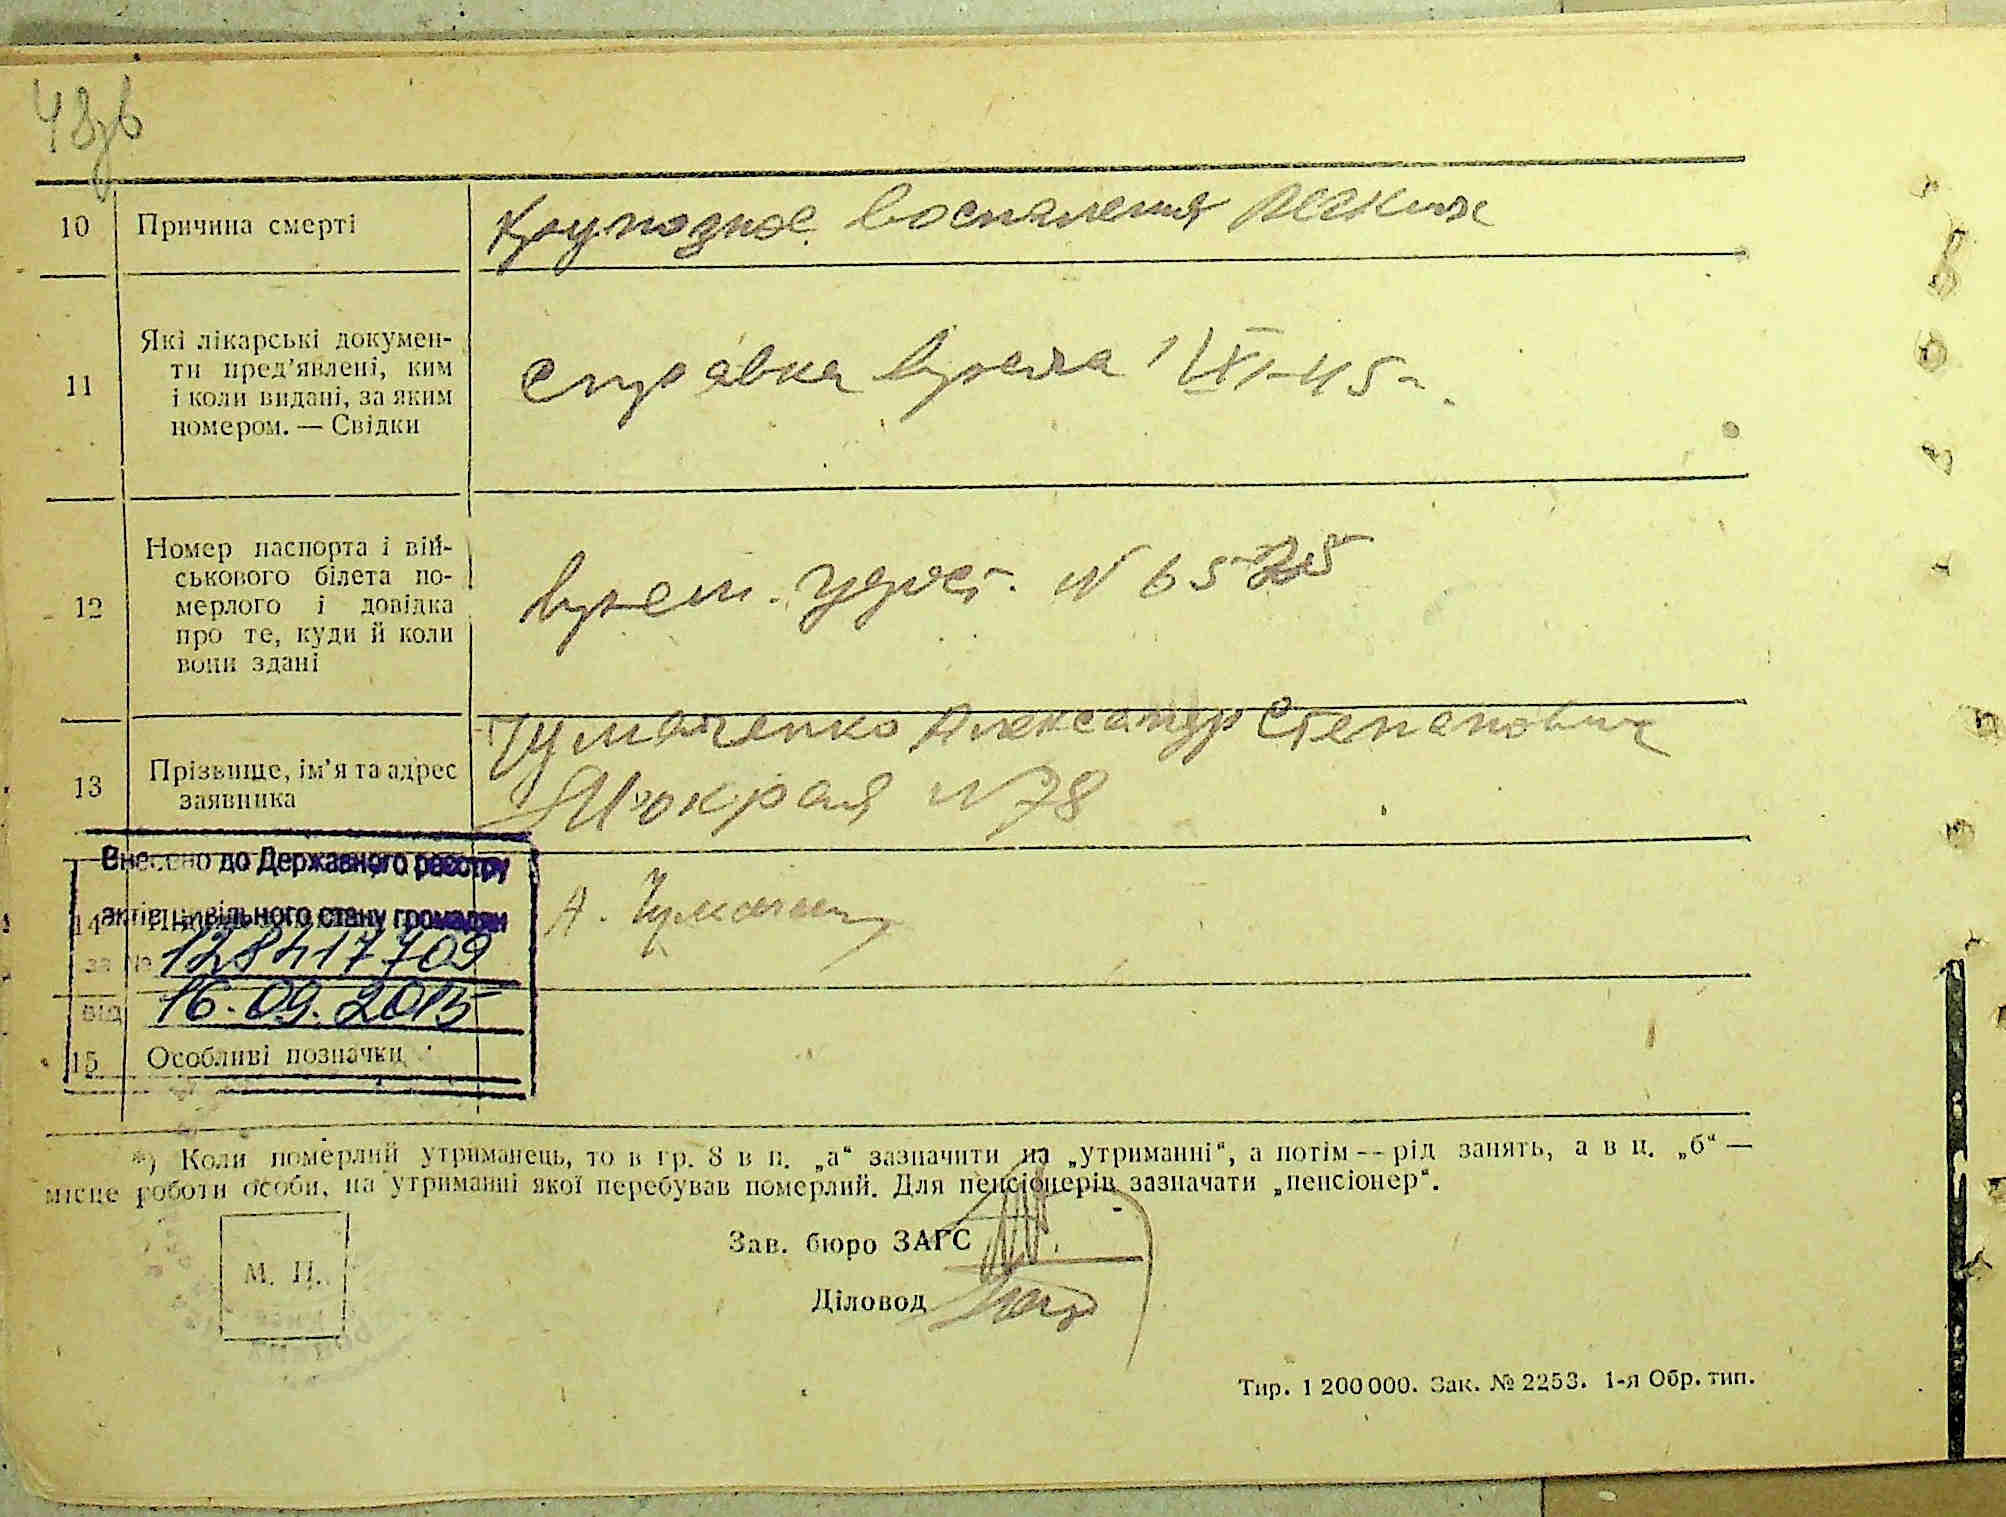 48зв
10 Причина смерті Крупозное воспаления легких
11 Які лікарські докумен-
ти пред’явлені, ким
і коли видані, за яким
номером. — Свідки
справка врача
12 Номер паспорта і вій-
ськового білета по-
мерлого і довідка
про те, куди й коли
вони здані
врем. удост. N
13 Прізвище, ім’я та адрес
заявника
Чумаченко Александр Степанович
Мокрая N 78
Внесено до Державного реєстру
14 актів цивільного стану громадян
А. Чумаченко
за № 128417709
від 16.09.2015
15 Особливі позначки
*) Коли померлий утриманець, то в гр. 8 в п. „а“ зазначити на „утриманні“, а потім — рід занять, а в п. „б“ —
місце роботи особи, на утриманні якої перебував померлий. Для пенсіонерів зазначати „пенсіонер“.
Зав. бюро ЗАГС
М. П.
Діловод
Тир. 1 200 000. Зак. № 2253. 1-я Обр. тип.